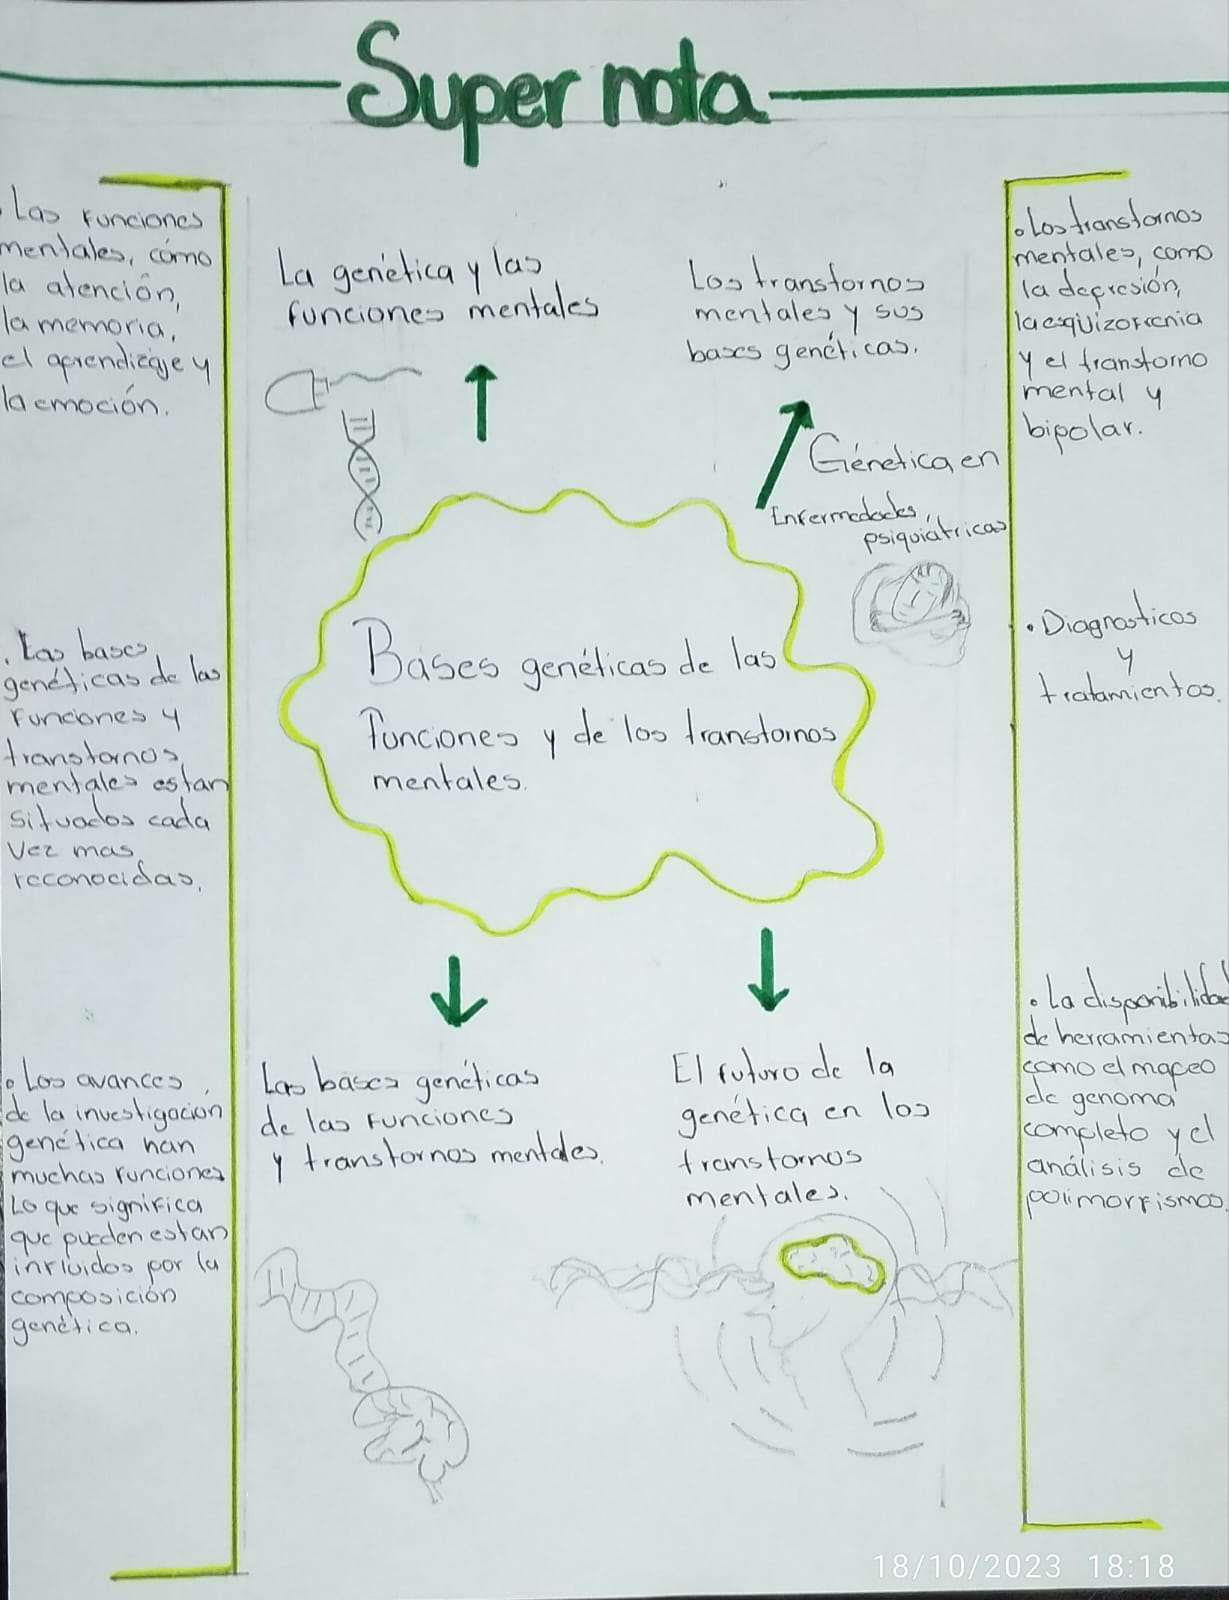 Super nota
. Las funciones
mentales, cómo
la atención,
la memoria,
el aprendizaje y
la emoción.
. Las bases
genéticas de las
funciones y
transtornos
mentales estan
situados cada
vez mas
reconocidas.
• Los avances
de la investigación
genética han
muchas funciones
Lo que significa
que pueden estan
influidos por la
composición
genética.
La genética y las
funciones mentales
Los transtornos
mentales y sus
bases genéticas.
Génetica en
Enfermedades
psiquiátricas
Bases genéticas de las
funciones y de los transtornos
mentales.
Las bases genéticas
de las funciones
y transtornos mentales.
El futuro de la
genética en los
transtornos
mentales.
• Los transtornos
mentales, como
la depresión,
la esquizofrenia
y el transtorno
mental y
bipolar.
• Diagnosticos
y
tratamientos.
• La disponibilidad
de herramientas
como el mapeo
de genoma
completo y el
análisis de
polimorfismos.
18/10/2023 18:18